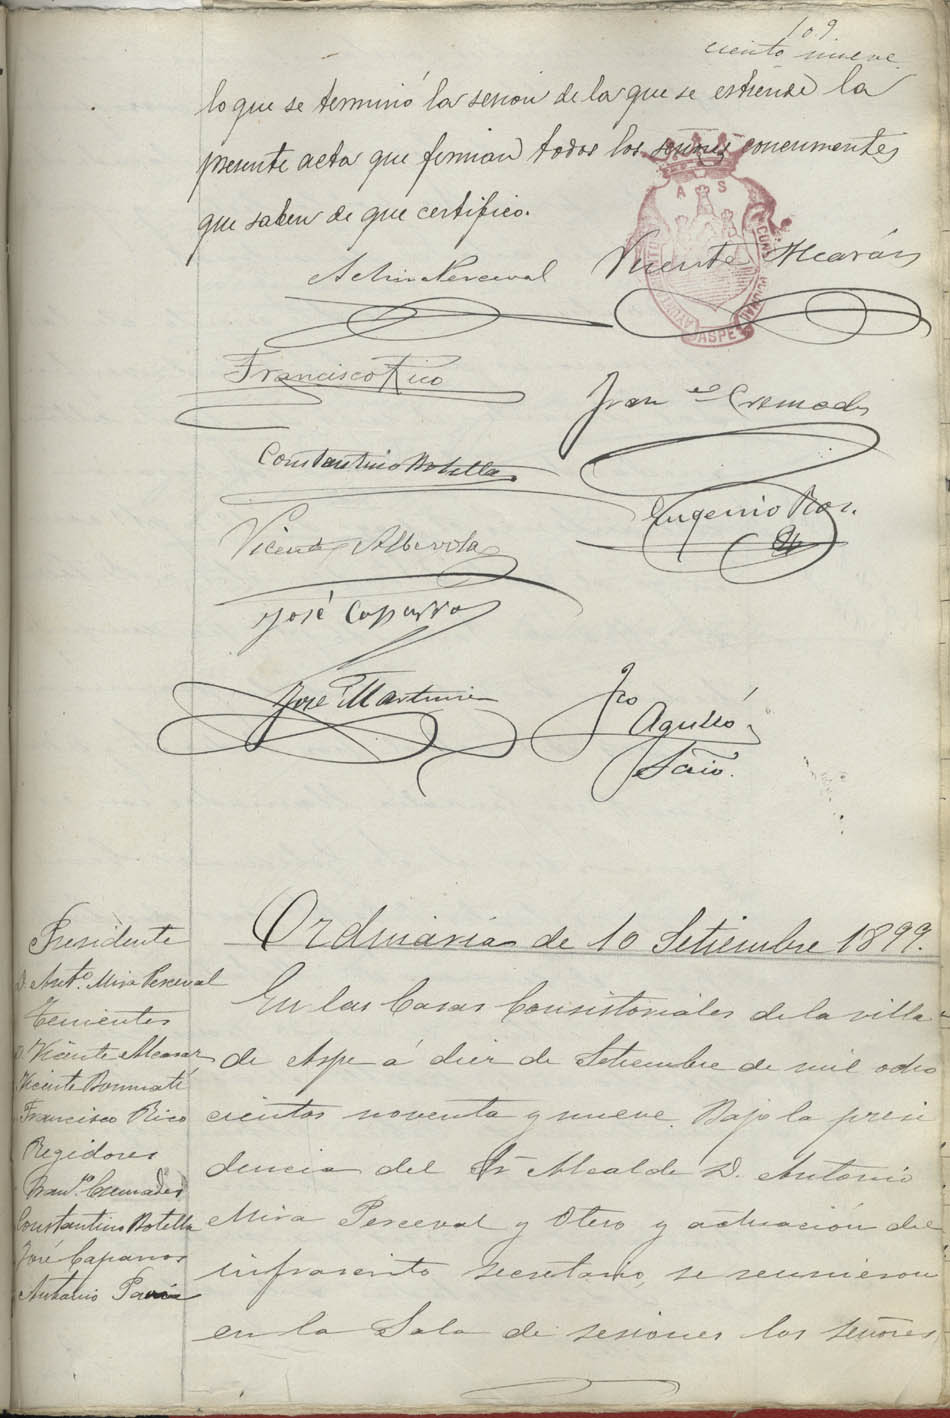 109
ciento nueve.
lo que se terminó la sesion de la que se estiende la
presente acta que firman todos los señores concurrentes
que saben de que certifico.
A. Mira Perceval
Vicente Alcarán
A S
AYUNT CONSTITUCIONAL
ASPE
Francisco Rico
Fran.co Cremades
Constantino Botella
Eugenio
Vicente Alberola
José Caparros
José Martinez
Fco Agulló
Srio.
Presidente
D. Ant.o Mira Perceval
Tenientes
D. Vicente
Vicente Bonmatí
Francisco Rico
Regidores
Fran.co Cremades
Constantino Botella
José Caparros
Antonio
Ordinaria de 10 Setiembre 1899.
En las Casas Consistoriales de la villa
de Aspe á diez de Setiembre de mil ocho
cientos noventa y nueve. Bajo la presi
dencia del Sr Alcalde D. Antonio
Mira Perceval y Otero y actuación del
infrascrito secretario, se reunieron
en la Sala de sesiones los señores